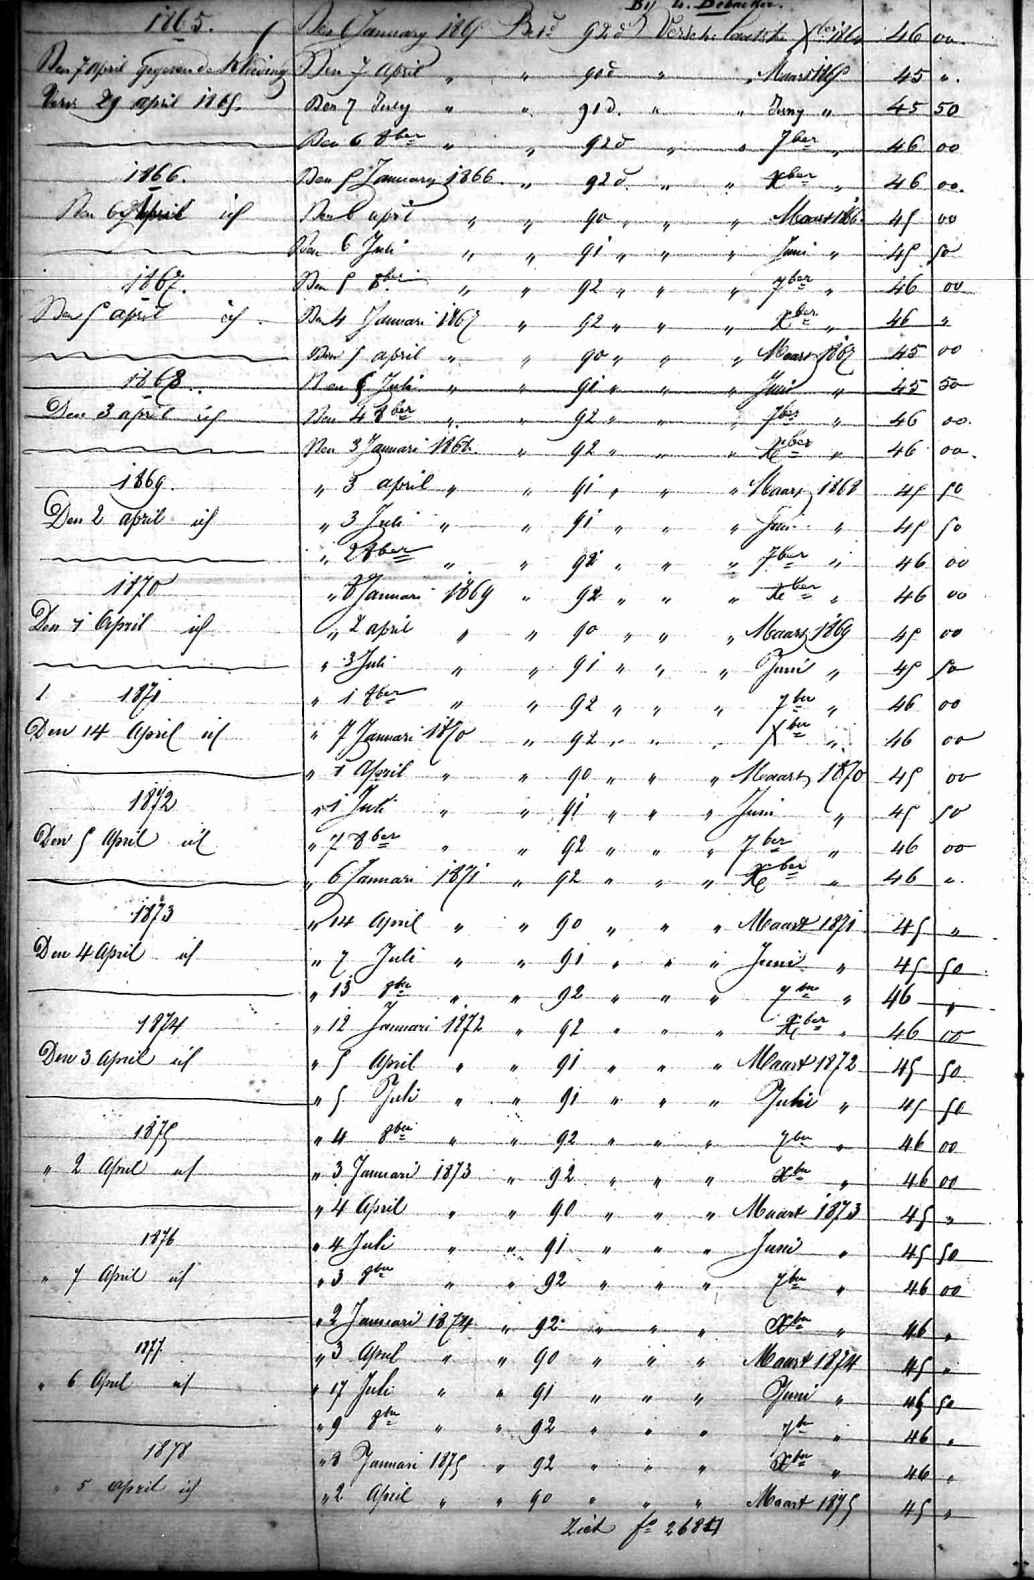 By L. Debacker.
1865. Den 6 January 1865 Bet. 92 d Versch. laatste Xber 1864 46 00
Den 7 April gegeven de kleeding Den 7 April " " 90 d " " Maart 1865 45 "
Vers 29 april 1865. Den 7 July " " 91 d. " " Juny " 45 50
Den 6 8ber " " 92 d " " 7ber " 46 00
1866. Den 5 January 1866. " 92 d. " " Xber " 46 00.
Den 6 April id Den 6 april " " 90 " " " Maart 1866. 45 00
Den 6 Juli " " 91 " " " Juni " 45 50
1867. Den 5 8ber " " 92 " " " 7ber " 46 00
Den 5 april id. Den 4 Januari 1867 " 92 " " " Xber " 46 "
Den 5 april " " 90 " " " Maart 1867 45 00
1868. Den 5 Juli " " 91 " " " Juni " 45 50
Den 3 april id Den 4 8ber " " 92 " " " 7ber " 46 00.
Den 3 Januari 1868. " 92 " " " Xber " 46 00.
1869. " 3 april " " 91 " " " Maart 1868 45 50
Den 2 april id " 3 Juli " " 91 " " " Juni " 45 50
" 2 8ber " " 92 " " " 7ber " 46 00
1870 " 8 Januari 1869 " 92 " " " Xber " 46 00
Den 1 April id " 2 april " " 90 " " " Maart 1869 45 00
" 3 Juli " " 91 " " " Juni " 45 50
1871 " 1 8ber " " 92 " " " 7ber " 46 00
Den 14 April id " 7 Januari 1870 " 92 " " " Xber " 46 00
" 1 April " " 90 " " " Maart 1870 45 00
1872 " 1 Juli " " 91 " " " Juni " 45 50
Den 5 April id " 7 8ber " " 92 " " " 7ber " 46 00
" 6 Januari 1871 " 92 " " " Xber " 46 "
1873 " 14 April " " 90 " " " Maart 1871 45 "
Den 4 April id " 7 Juli " " 91 " " " Juni " 45 50
" 13 8ber " " 92 " " " 7ber " 46 "
1874 " 12 Januari 1872 " 92 " " " Xber " 46 00
Den 3 April id " 5 April " " 91 " " " Maart 1872 45 50
" 5 Juli " " 91 " " " Juni " 45 50
1875 " 4 8ber " " 92 " " " 7ber " 46 00
" 2 April id " 3 Januari 1873 " 92 " " " Xber " 46 00
" 4 April " " 90 " " " Maart 1873 45 "
1876 " 4 Juli " " 91 " " " Juni " 45 50
" 7 April id " 3 8ber " " 92 " " " 7ber " 46 00
" 2 Januari 1874 " 92 " " " Xber " 46 "
1877 " 3 April " " 90 " " " Maart 1874 45 "
" 6 April id " 17 Juli " " 91 " " " Juni " 45 50
" 9 8ber " " 92 " " " 7ber " 46 "
1878 " 8 Januari 1875 " 92 " " " Xber " 46 "
" 5 April id " 2 April " " 90 " " " Maart 1875 45 "
Ziet fo